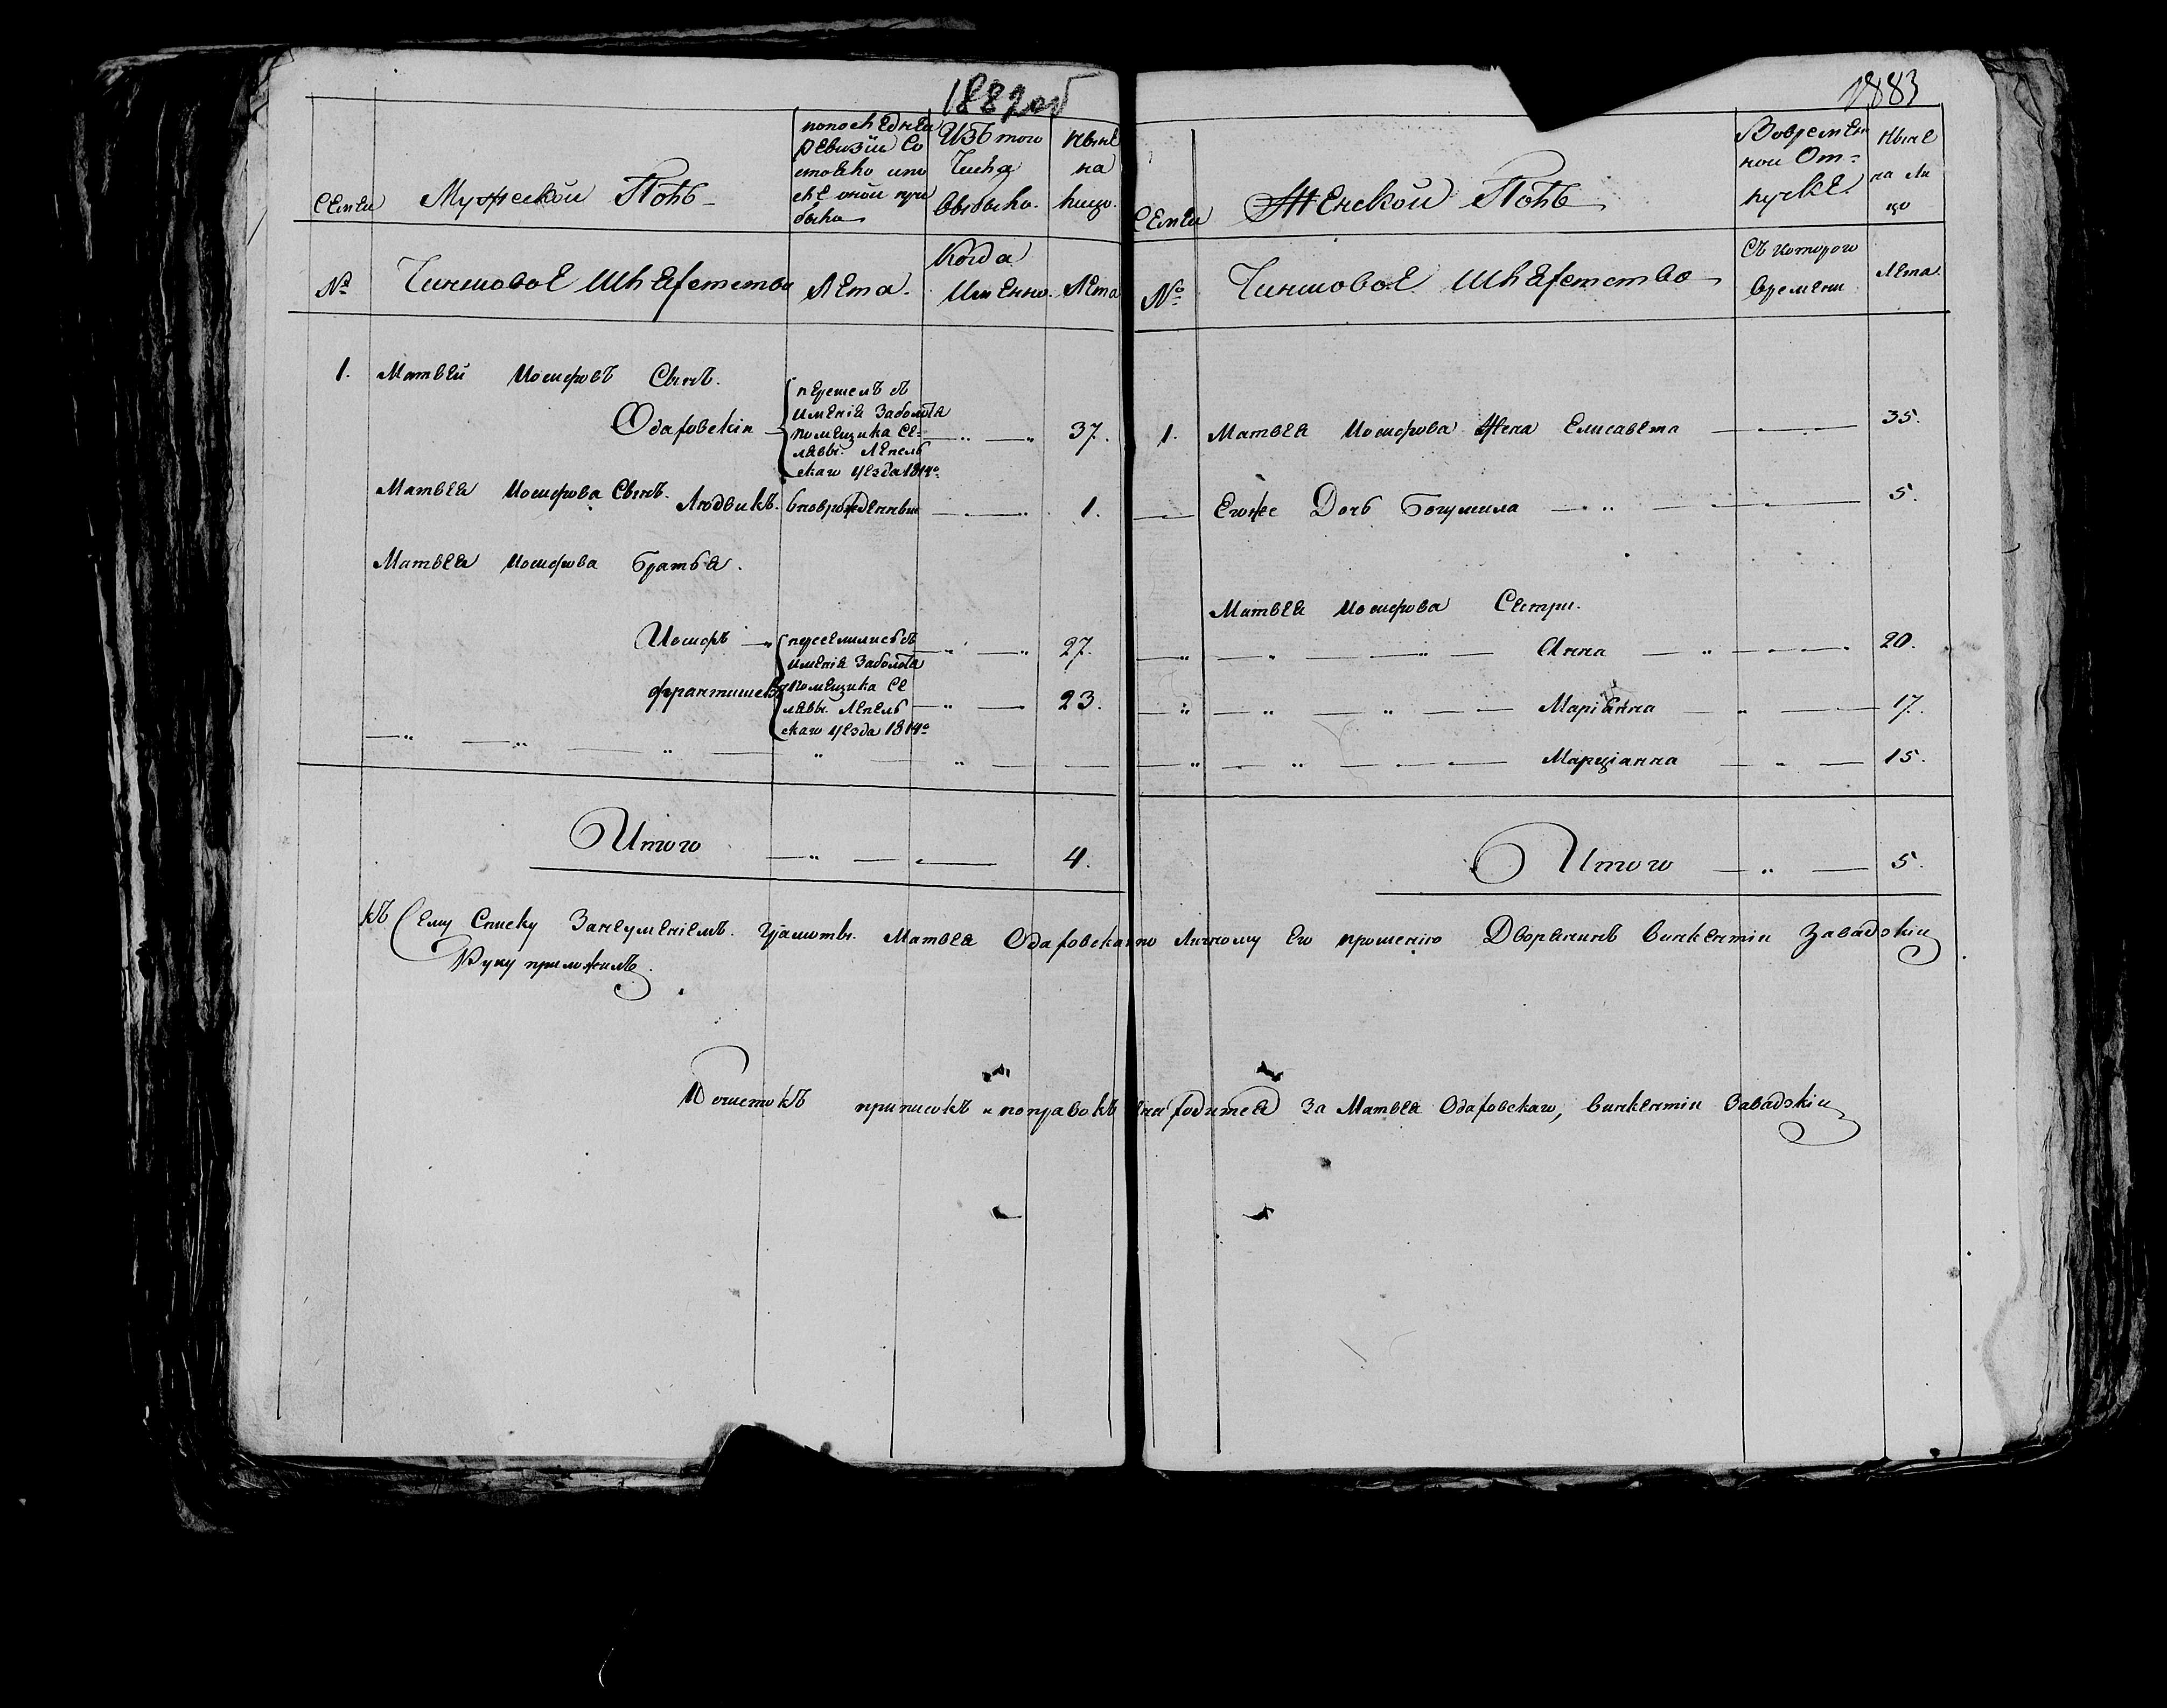 1882 об
Семьи
Мужеской Полъ
по последней
ревизіи со
стояло и по
сле оной при
было
Изъ того
Числа
выбыло.
Ныне
на
лицо.
№
Чиншовое Шляхетство
Лета.
Когда
Именно.
Лета
1. Матвей Иосифовъ Сынъ.
Одаховскіи
перешелъ въ
имения Заболотя
помещика Се-
лявы. Лепель
скаго уезда 1814го
37.
Матвея Иосифова Сынъ.
Людвикъ. вновьрожденный 1.
Матвея Иосифова Братья.
Иосифъ
Франтишекъ
переселилисьвъ
имения Заболотя
Помещика Се
лявы. Лепель
скаго уезда 1814го
27.
23.
Итого 4.
1883
Семьи
Женской Полъ
Вовремян
ной От-
лучке.
Ныне
на ли
цо
№
Чиншовое Шляхетство
Съ котораго
времени
Лета.
1. Матвея Иосифова Жена Елисавета 35.
Егоже Дочь Богумила 5.
Матвея Иосифова Сестры.
Анна 20.
Маріанна 17.
Марціанна 15.
Итого 5.
Къ Сему Списку Занеуменіемъ. Грамоты. Матвея Одаховскаго по Личному Его прошенію Дворянинъ Викентіи Завадзкіи
Руку приложилъ.
Почистокъ приписокъ и поправокъ ненаходится За Матвея Одаховскаго, Викентіи Завадзкіи